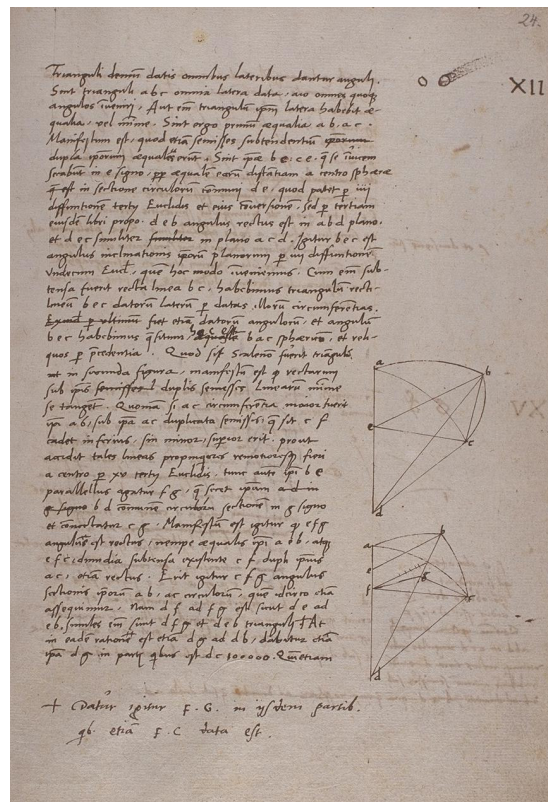 24.
XII
Trianguli demum datis omnibus lateribus dantur anguli.
Sint trianguli a b c omnia latera data, aio omnes quoq
angulos īveniri. Aut em̄ triangulū ipm̄ latera habebit æ-
qualia, vel mīme. Sint ergo primū æqualia a b, a c.
Manifestum est, quod etiā semisses subtendentiū
dupla ipsorum æquales erūt. Sint ipsæ b e, c e, q se īvicem
secabūt in e signo, pp æquale earū distātiam a centro sphæræ
q est in sectione circulorū comuni d e, quod patet p iiij
diffinitionē tertij Euclidis et eius cōversionē. Sed p tertiam
eiusdē libri propo. d e b angulus rectus est in a b d plano,
et d e c similiter in plano a c d. Igitur b e c est
angulus inclinationis ipsorū planorum p iiij diffinitionē
undecimi Eucl., que hoc modo īveniemus. Cum em̄ sub-
tensa fuerit recta linea b c, habebimus triangulū recti-
lineū b e c datorū laterū p datas illorū circumferētias.
fiet etiā datorū angulorū, et angulū
b e c habebimus q̄situm, b a c sphæricū, et reli-
quos p præcedentia. Quod si Scalenū fuerit triāgulū,
ut in secunda figura, manifestū est q rectarum
sub ipsis duplis semisses linearum mīme
se tangēt. Quoniā si a c circumferētia maior fuerit
ipā a b, sub ipā a c duplicata semissis, q sit c f
cadet inferius, sin minor, supior erit, prout
accidit tales lineas propinquiores remotioresq fieri
a centro p xv tertij Euclidis. tunc autē ipi b e
parallelus agatur f g, q secet ipsam
b d comunē circulorū sectionē in g signo
et conectatur c g. Manifestū est igitur q e f g
angulus est rectus, nempe æqualis ipi a e b, atq
e f c, dimidia subtensa existente c f dupli ipsius
a c, etiā rectus. Erit igitur c f g angulus
sectionis ipsorū a b, a c circulorū, que idcirco etiā
assequimur. Nam d f ad f g est sicut d e ad
e b, similes em̄ sunt d f g et d e b trianguli. + At
in eadē ratione est etiā d g ad d b, dabitur etiā
ipā d g in partib quibus est d c 100000. Quinetiam
+ Datur igitur F. G. in ijsdem partib.
qb. etiā F. C data est.
XV
a
b
e
c
d
a
b
e
g
f
c
d